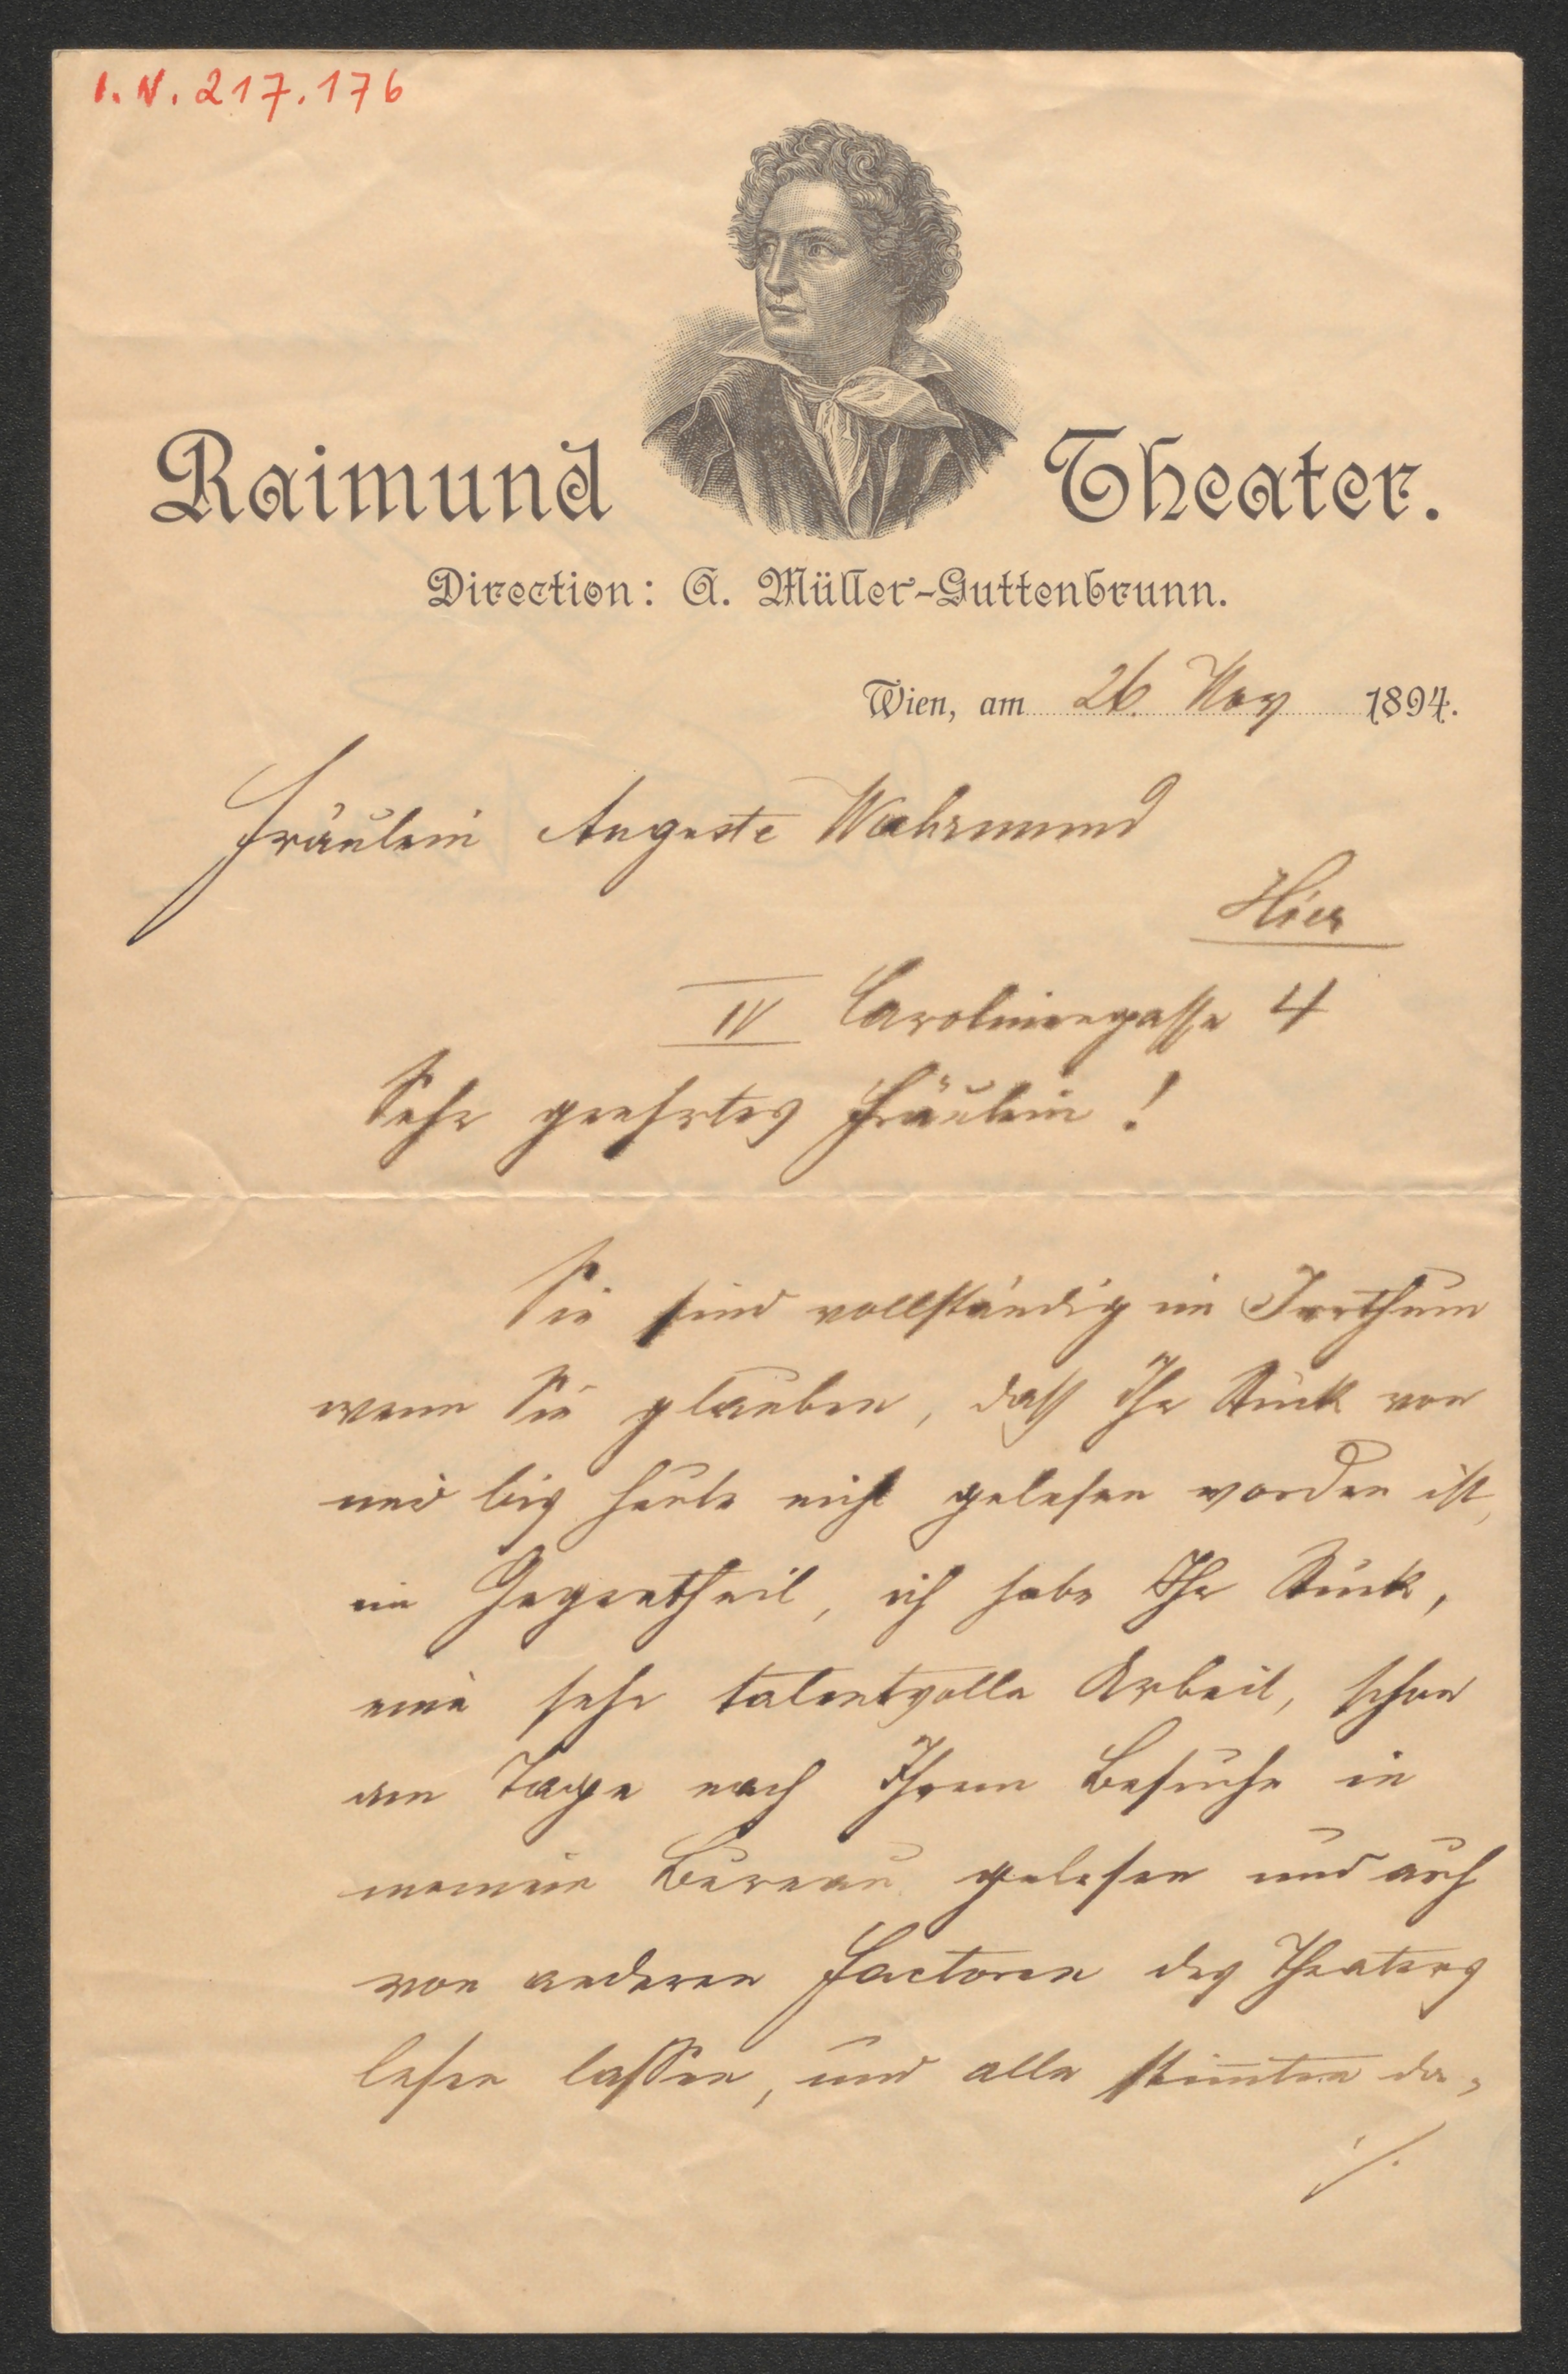 I. N. 217.176
Raimund Theater.
Direction: A. Müller-Guttenbrunn.
Wien, am 26. Nov 1894.
Fräulein Auguste Wahrmund
Hier
IV Carolinengasse 4
Sehr geehrtes Fräulein!
Sie sind vollständig im Irrthum
wenn Sie glauben, daß Ihr Stück von
mir bis heute nicht gelesen worden ist,
im Gegentheil, ich habe Ihr Stück,
eine sehr talentvolle Arbeit, schon
am Tage nach Ihrem Besuche in
meinem Bureau gelesen und auch
von anderen Factoren des Theaters
lesen lassen, und alle stimmten da-
./.